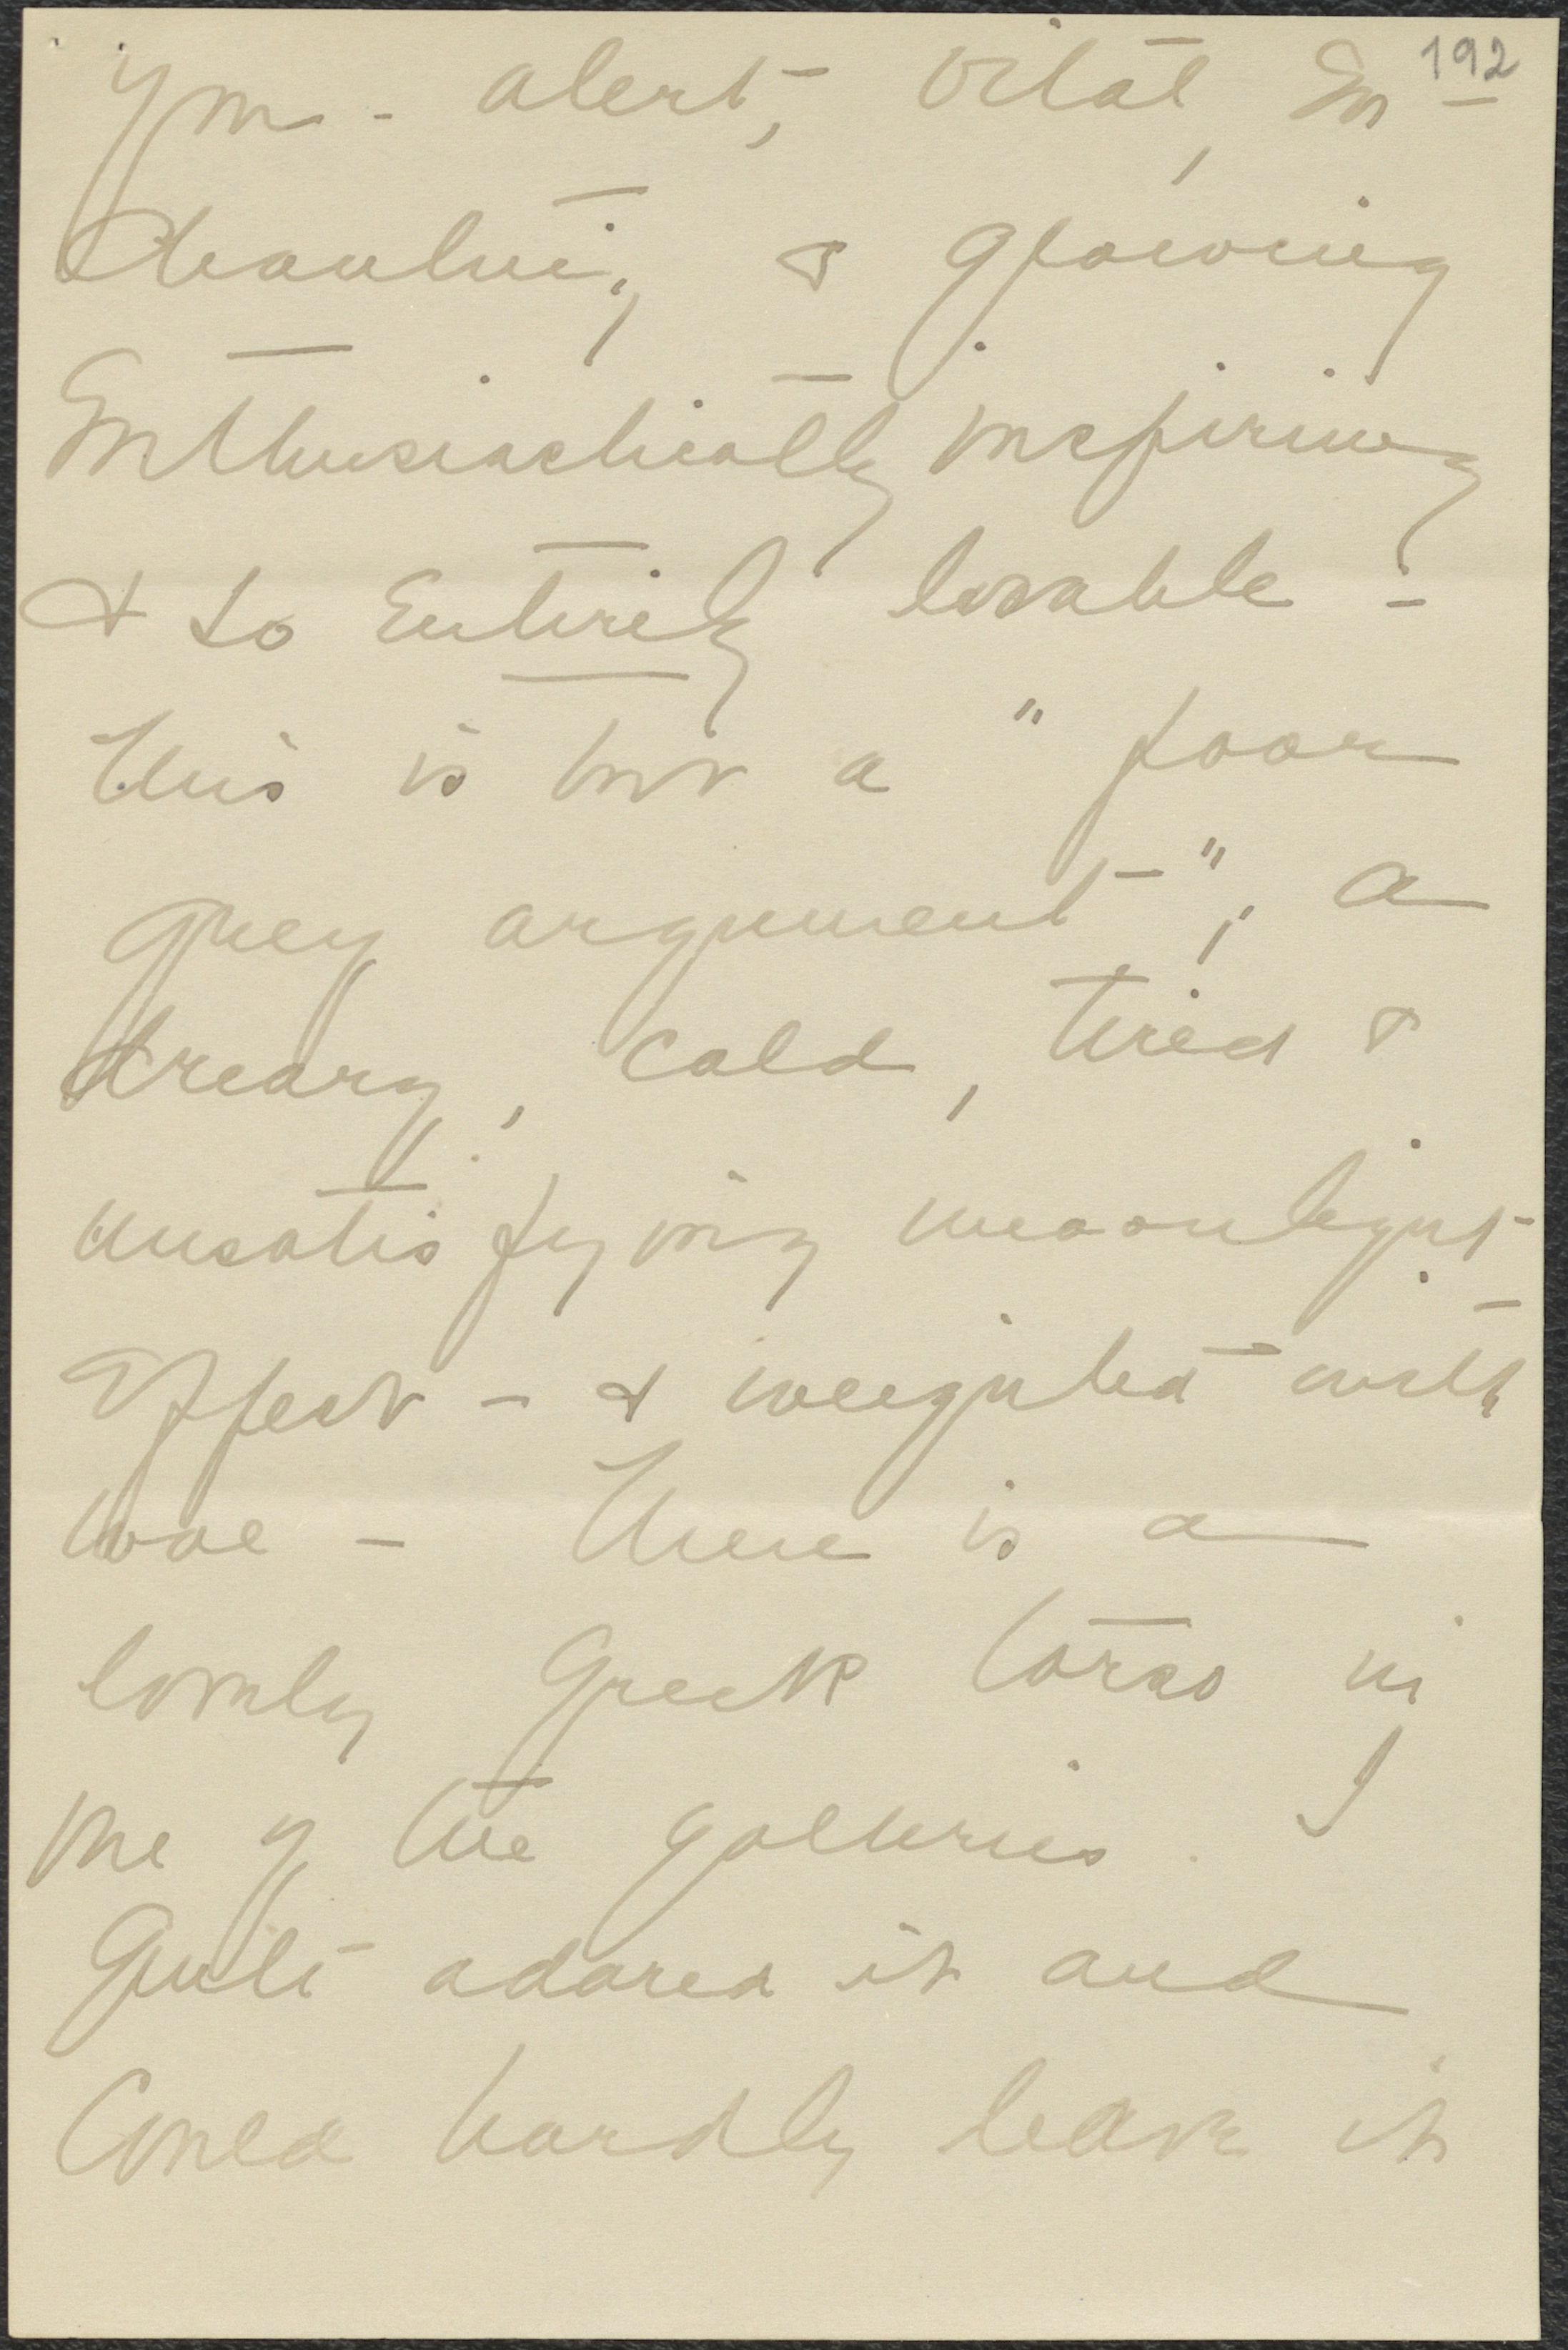 192
you - alert, vital, en-
chanting, & glowing
Enthusiastically inspiring
& so Entirely lovable -
this is but a " poor
grey argument ", a
dreary, cold, tired &
unsatisfying moonlight
Effect - & weighted with
woe - There is a
lovely Greek torso in
one of the galleries. I
Quite adored it and
Could hardly leave it